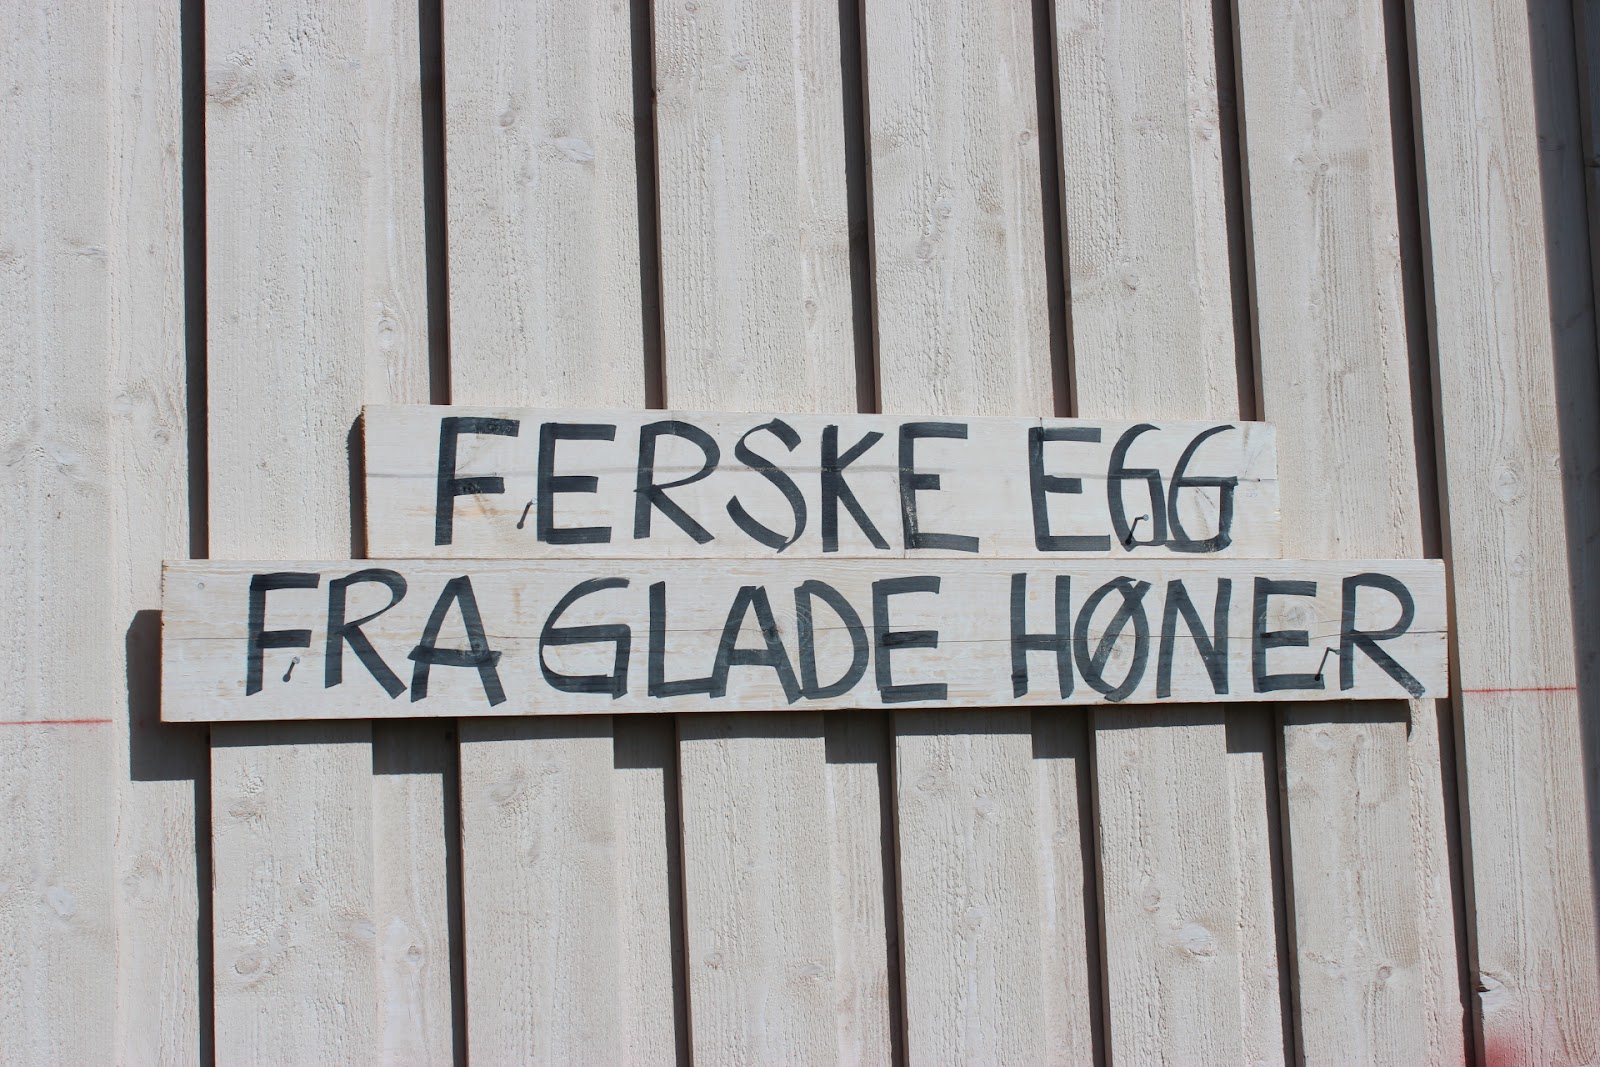 FERSKE EGG
FRA GLADE HØNER